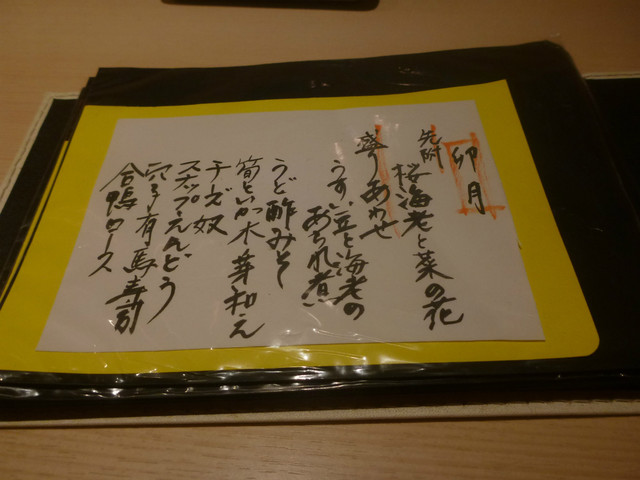 卯月
先附
桜海老と菜の花
盛りあわせ
うすい豆と海老の
おちれ煮
うど酢みそ
筍といか木の芽和え
チーズ奴
スナップえんどう
穴子有馬寿司
合鴨ロース